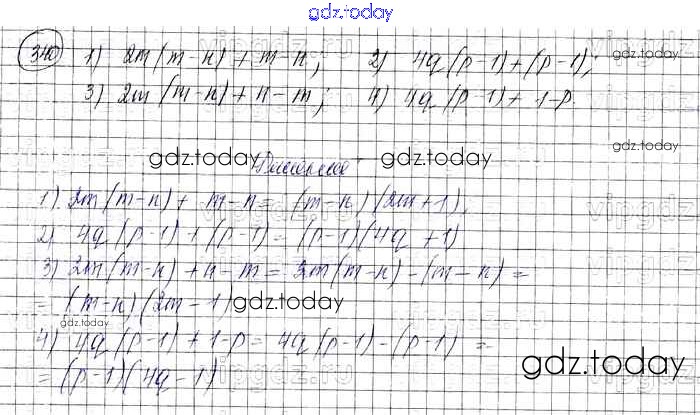 gdz.today
340 1) 2m(m-n)+m-n; 2) 4q(p-1)+(p-1);
3) 2m(m-n)+n-m; 4) 4q(p-1)+1-p.
gdz.today gdz.today
Решение
1) 2m(m-n)+m-n=(m-n)(2m+1),
2) 4q(p-1)+(p-1)=(p-1)(4q+1)
3) 2m(m-n)+n-m=2m(m-n)-(m-n)=
=(m-n)(2m-1) gdz.today
4) 4q(p-1)+1-p=4q(p-1)-(p-1)=
=(p-1)(4q-1)
gdz.today